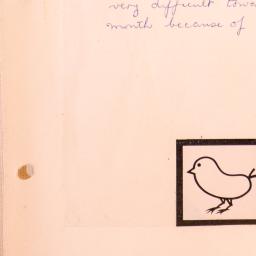 very difficult
month because of